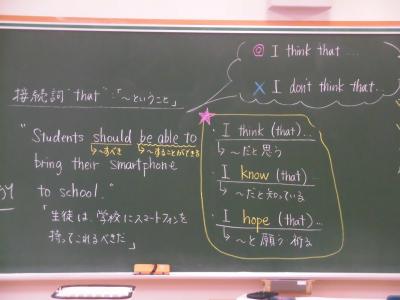 ◎ I think that…
× I don't think that…
接続詞 "that"：「〜ということ」
"Students should be able to
↳〜すべき ↳〜することができる
bring their smartphone
to school."
「生徒は、学校にスマートフォンを
持ってこれるべきだ」
★
・I think (that)…
↳〜だと思う
・I know (that)…
↳〜だと知っている
・I hope (that)…
↳〜と願う 祈る